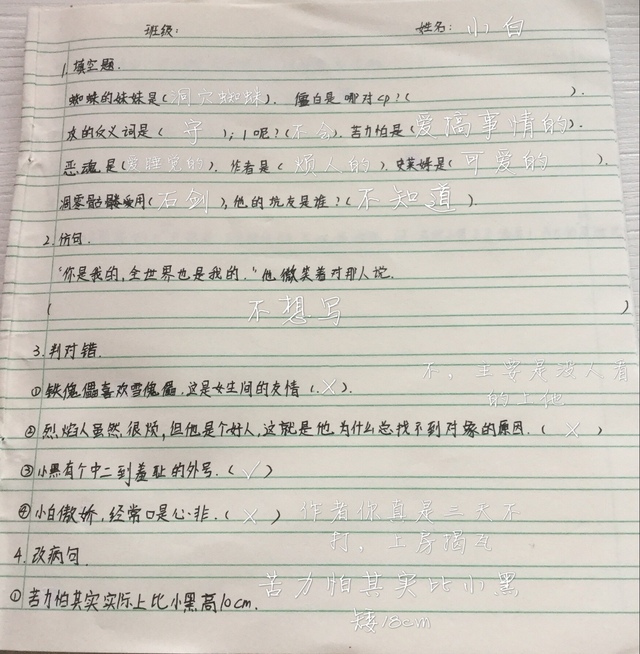 班级: 姓名: 小白
1.填空题.
蜘蛛的妹妹是(洞穴蜘蛛). 僵白是哪对cp?( ).
灰的反义词是( 守 );1呢?(不念).苦力怕是(爱搞事情的).
恶魂是(爱睡觉的).作者是(烦人的).史莱姆是(可爱的 ).
凋零骷髅爱用(石剑),他的坑友是谁?(不知道 ).
2.仿句.
“你是我的,全世界也是我的.”他微笑着对那人说.
( 不想写 )
3.判对错.
①铁傀儡喜欢雪傀儡.这是女生间的友情(.×). 不,主要是没人看
的上他
②烈焰人虽然很烦,但他是个好人,这就是他为什么总找不到对象的原因.( × )
③小黑有个中二到羞耻的外号.(√)
④小白傲娇,经常口是心非.( × ) 作者你真是三天不
打,上房揭瓦
4.改病句.
①苦力怕其实实际上比小黑高10cm. 苦力怕其实比小黑
矮10cm